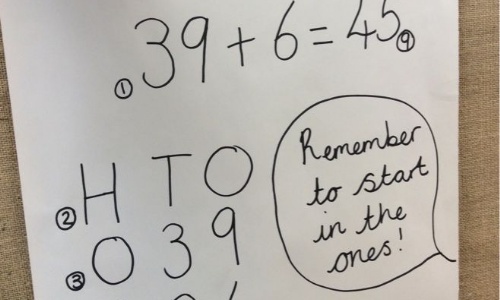 ① 39 + 6 = 45 ⑨
② H T O
③ 0 3 9
Remember
to start
in the
ones!